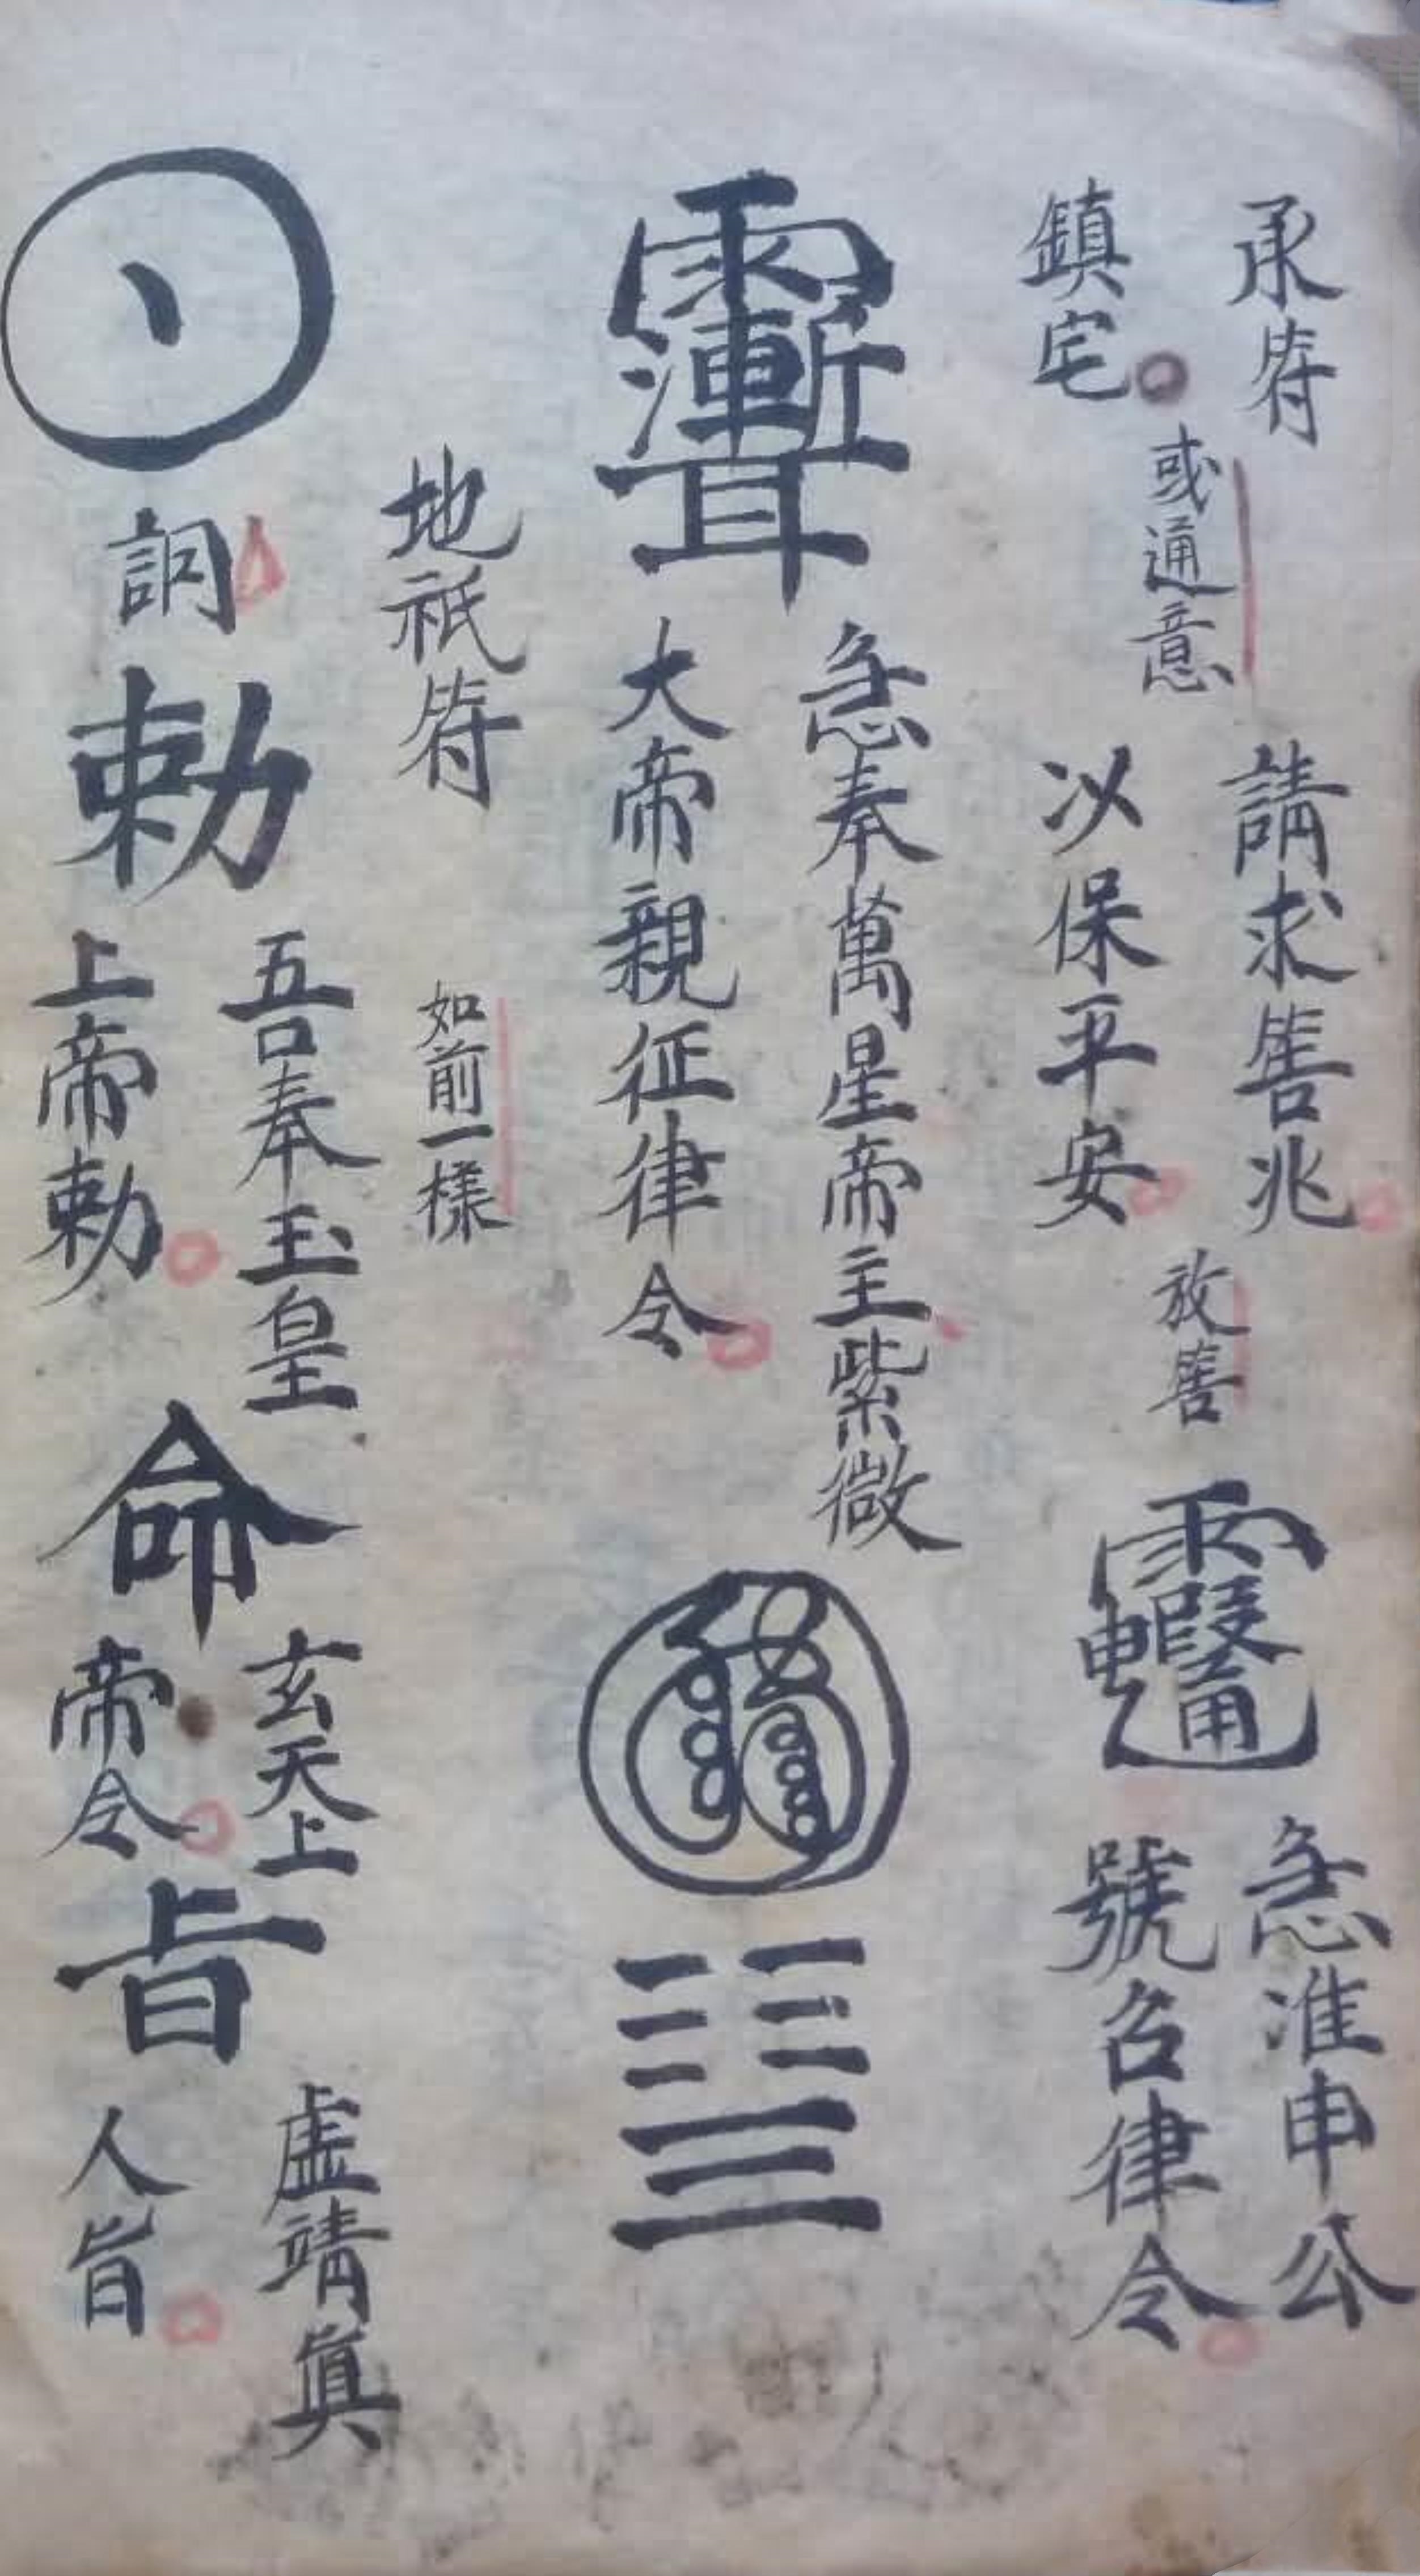 承符
鎮宅
或通意
請求
兆
以保平安
放
急准申公
號名律令
急奉萬星帝主紫微
大帝親征律令
地祇符
如前一樣
勅
吾奉玉皇
上帝勅
命
玄天上
帝令
旨
虛靖真
人旨